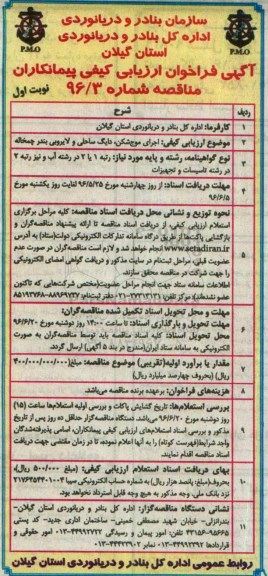 سازمان بنادر و دریانوردی
اداره کل بنادر و دریانوردی
استان گیلان
P.M.O
P.M.O
آگهی فراخوان ارزیابی کیفی پیمانکاران
مناقصه شماره ۹۶/۳
نوبت اول
ردیف
شرح
۱
کارفرما: اداره کل بنادر و دریانوردی استان گیلان
۲
موضوع ارزیابی کیفی: اجرای موج‌شکن، دایک ساحلی و لایروبی بندر چمخاله
۳
نوع گواهینامه، رشته و پایه مورد نیاز: رتبه ۱ یا ۲ در رشته آب و نیز رتبه ۲
در رشته تاسیسات و تجهیزات
۴
مهلت دریافت اسناد: از روز چهارشنبه مورخ ۹۶/۵/۲۵ لغایت روز یکشنبه مورخ
۹۶/۶/۵
۵
نحوه توزیع و نشانی محل دریافت اسناد مناقصه: کلیه مراحل برگزاری
استعلام ارزیابی کیفی، از دریافت اسناد مناقصه تا ارائه پیشنهاد مناقصه‌گران و
بازگشایی پاکت‌ها از طریق درگاه سامانه تدارکات الکترونیکی دولت(ستاد) به آدرس
www.setadiran.ir انجام خواهد شد و لازم است مناقصه‌گران در صورت عدم
عضویت قبلی، مراحل ثبت‌نام در سایت مذکور و دریافت گواهی امضای الکترونیکی
را جهت شرکت در مناقصه محقق سازند.
اطلاعات سامانه ستاد جهت انجام مراحل عضویت(مختص شرکت‌هایی که تاکنون
عضو نشده‌اند): مرکز تلفن ۲۷۳۱۳۱۳۱-۰۲۱ دفتر ثبت‌نام: ۸۸۹۶۹۷۳۷-۸۵۱۹۳۷۶۸
۶
مهلت و محل تحویل اسناد تکمیل شده مناقصه‌گران:
مهلت تحویل و بارگذاری اسناد: تا ساعت ۱۴:۰۰ روز دوشنبه مورخ ۹۶/۶/۲۰
محل تحویل اسناد: کلیه اسناد مناقصه باید توسط مناقصه‌گران به صورت
الکترونیکی به سامانه ستاد ایران(مندرج در بند ۵ آگهی) ارسال گردد.
۷
مقدار یا برآورد اولیه(تقریبی) موضوع مناقصه: مبلغ(۴۰۰/۰۰۰/۰۰۰/۰۰۰
ریال) (بحروف چهارصد میلیارد ریال)
۸
هزینه‌های فراخوان: بر عهده برنده مناقصه می‌باشد.
۹
بررسی استعلام‌ها: تاریخ گشایش پاکات و بررسی اولیه استعلام‌ها ساعت (۱۵)
روز دوشنبه مورخ ۹۶/۶/۲۰ می‌باشد. دستگاه مناقصه‌گزار حداقل ده روز پس از تاریخ
مذکور و بررسی اسناد استعلام‌های ارزیابی کیفی پیمانکاران، اسامی پذیرفته‌شدگان
واجد شرایط(فهرست کوتاه) را به آنها اعلام نموده، تا در زمان مقتضی جهت دریافت
اسناد مناقصه اقدام نمایند.
۱۰
بهای دریافت اسناد استعلام ارزیابی کیفی: (مبلغ ۵۰۰/۰۰۰ ریال)،
(بحروف: مبلغ پانصد هزار ریال) به شماره حساب الکترونیکی سیبا
نزد بانک ملی. وجه مذکور به هیچ وجه قابل استرداد نخواهد بود.
۱۱
نشانی دستگاه مناقصه‌گزار: اداره کل بنادر و دریانوردی استان گیلان-
بندرانزلی- خیابان شهید مصطفی خمینی- ساختمان اداری جدید- کد پستی
۹۵۶۶۵-۴۳۱۵۶ تلفن: امور پیمان و رسیدگی ۴۴۹۱۲۷۲۲-۰۱۳ امور حقوقی و
قراردادها ۴۴۹۱۲۳۹۲-۰۱۳ نمابر ۴۴۴۲۳۹۰۲-۰۱۳
روابط عمومی اداره کل بنادر و دریانوردی استان گیلان